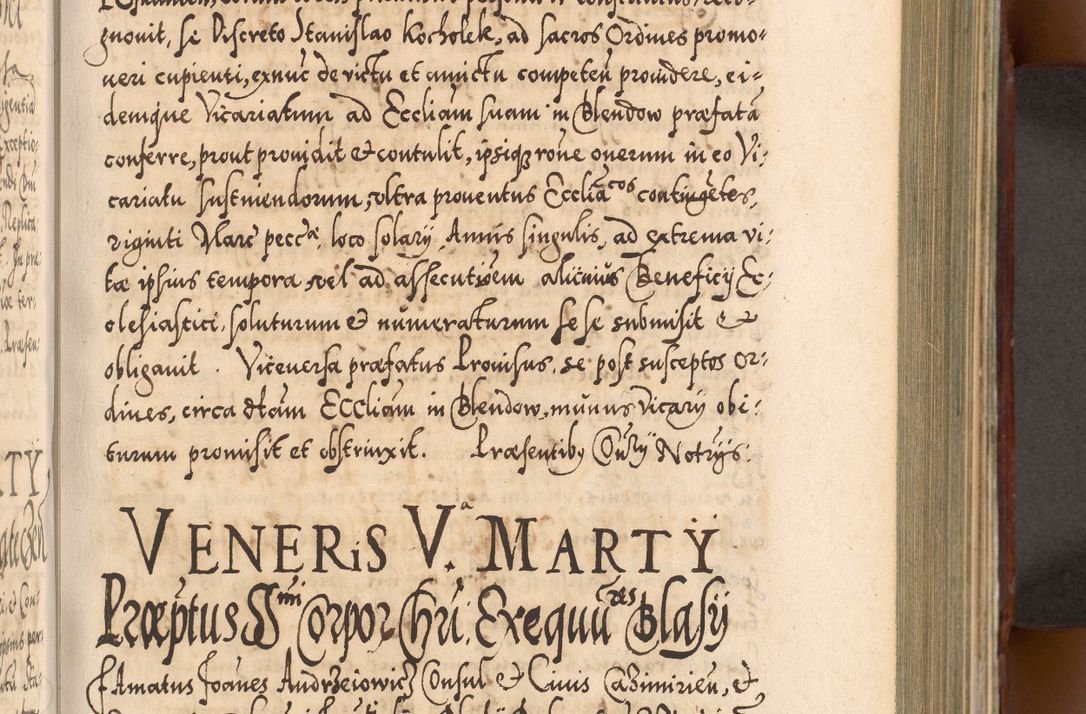 gnouit, se Discreto Stanislao Kocholek, ad sacros Ordines promo-
ueri cupienti, exnuc de victu et amictu competeñ prouidere, ei-
demque Vicariatum ad Eccliam suam in Blendow præfatã
conferre, prout prouidit & contulit, ipsiq3 rõne onerum in eo Vi-
cariatu sustinendorum, vltra prouentus Eccliãcos contingẽtes,
viginti Marc pecc̃a, loco solarÿ Annis singulis, ad extrema vi-
tæ ipsius tempora, vel ad assecutiõem alicuius BeneficÿEc-
clesiastici, soluturum & numeraturum sese submisit &
obligauit. Viceuersa præfatus Prouisus, se post susceptos Or-
dines, circa dtam ECCliam in Blendow, munus Vicarÿ obi-
turum promisit et obstrinxit. Præsentibq Notrÿs.
VENERiS Vᵃ. MARTŸ
Præptus SSmi Corpor Chri, Exequũ Blasÿ
FAmatus Joañes Andrzeiowicz Consul & Ciuis Cazimirieñ, et